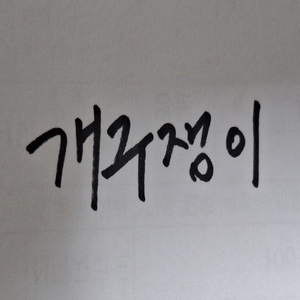 개구쟁이